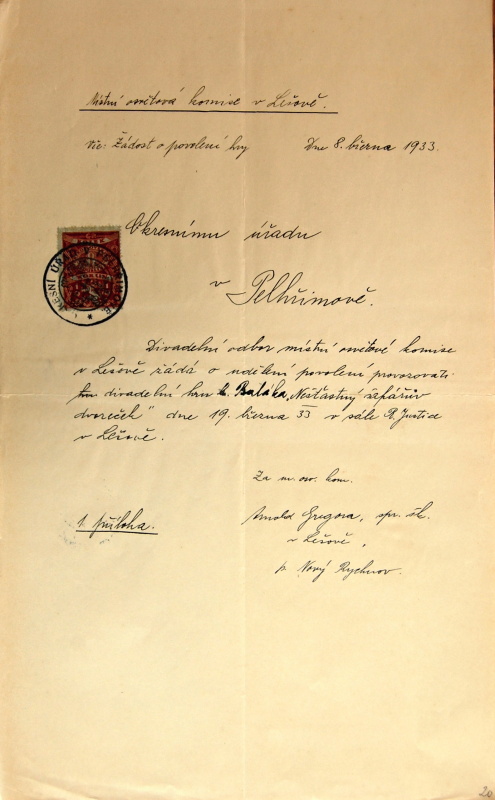 Místní osvětová komise v Lešově.
Věc: Žádost o povolení hry Dne 8. března 1933.
Okresnímu úřadu
v
Pelhřimově.
Divadelní odbor místní osvětové komise
v Lešově žádá o udělení povolení provozovati
divadelní hru Baláka, Nešťastný šafářův
dvoreček" dne 19. března 33 v sále R. Justice
v Lešově.
Za m. osv. kom.
1 příloha.
Arnold Gregora, spr. šk.
v Lešově,
p. Nový Rychnov.
20